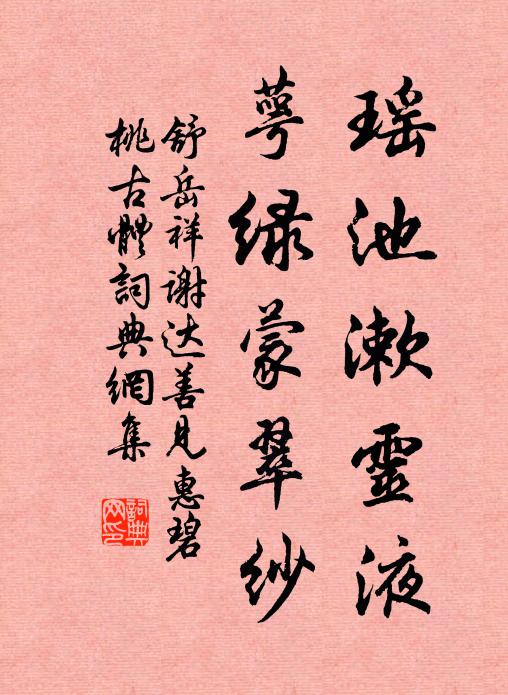 瑶池漱靈液
萼绿蒙翠纱
舒岳祥谢达善见惠碧
桃古體詞典網集
詞典
网印